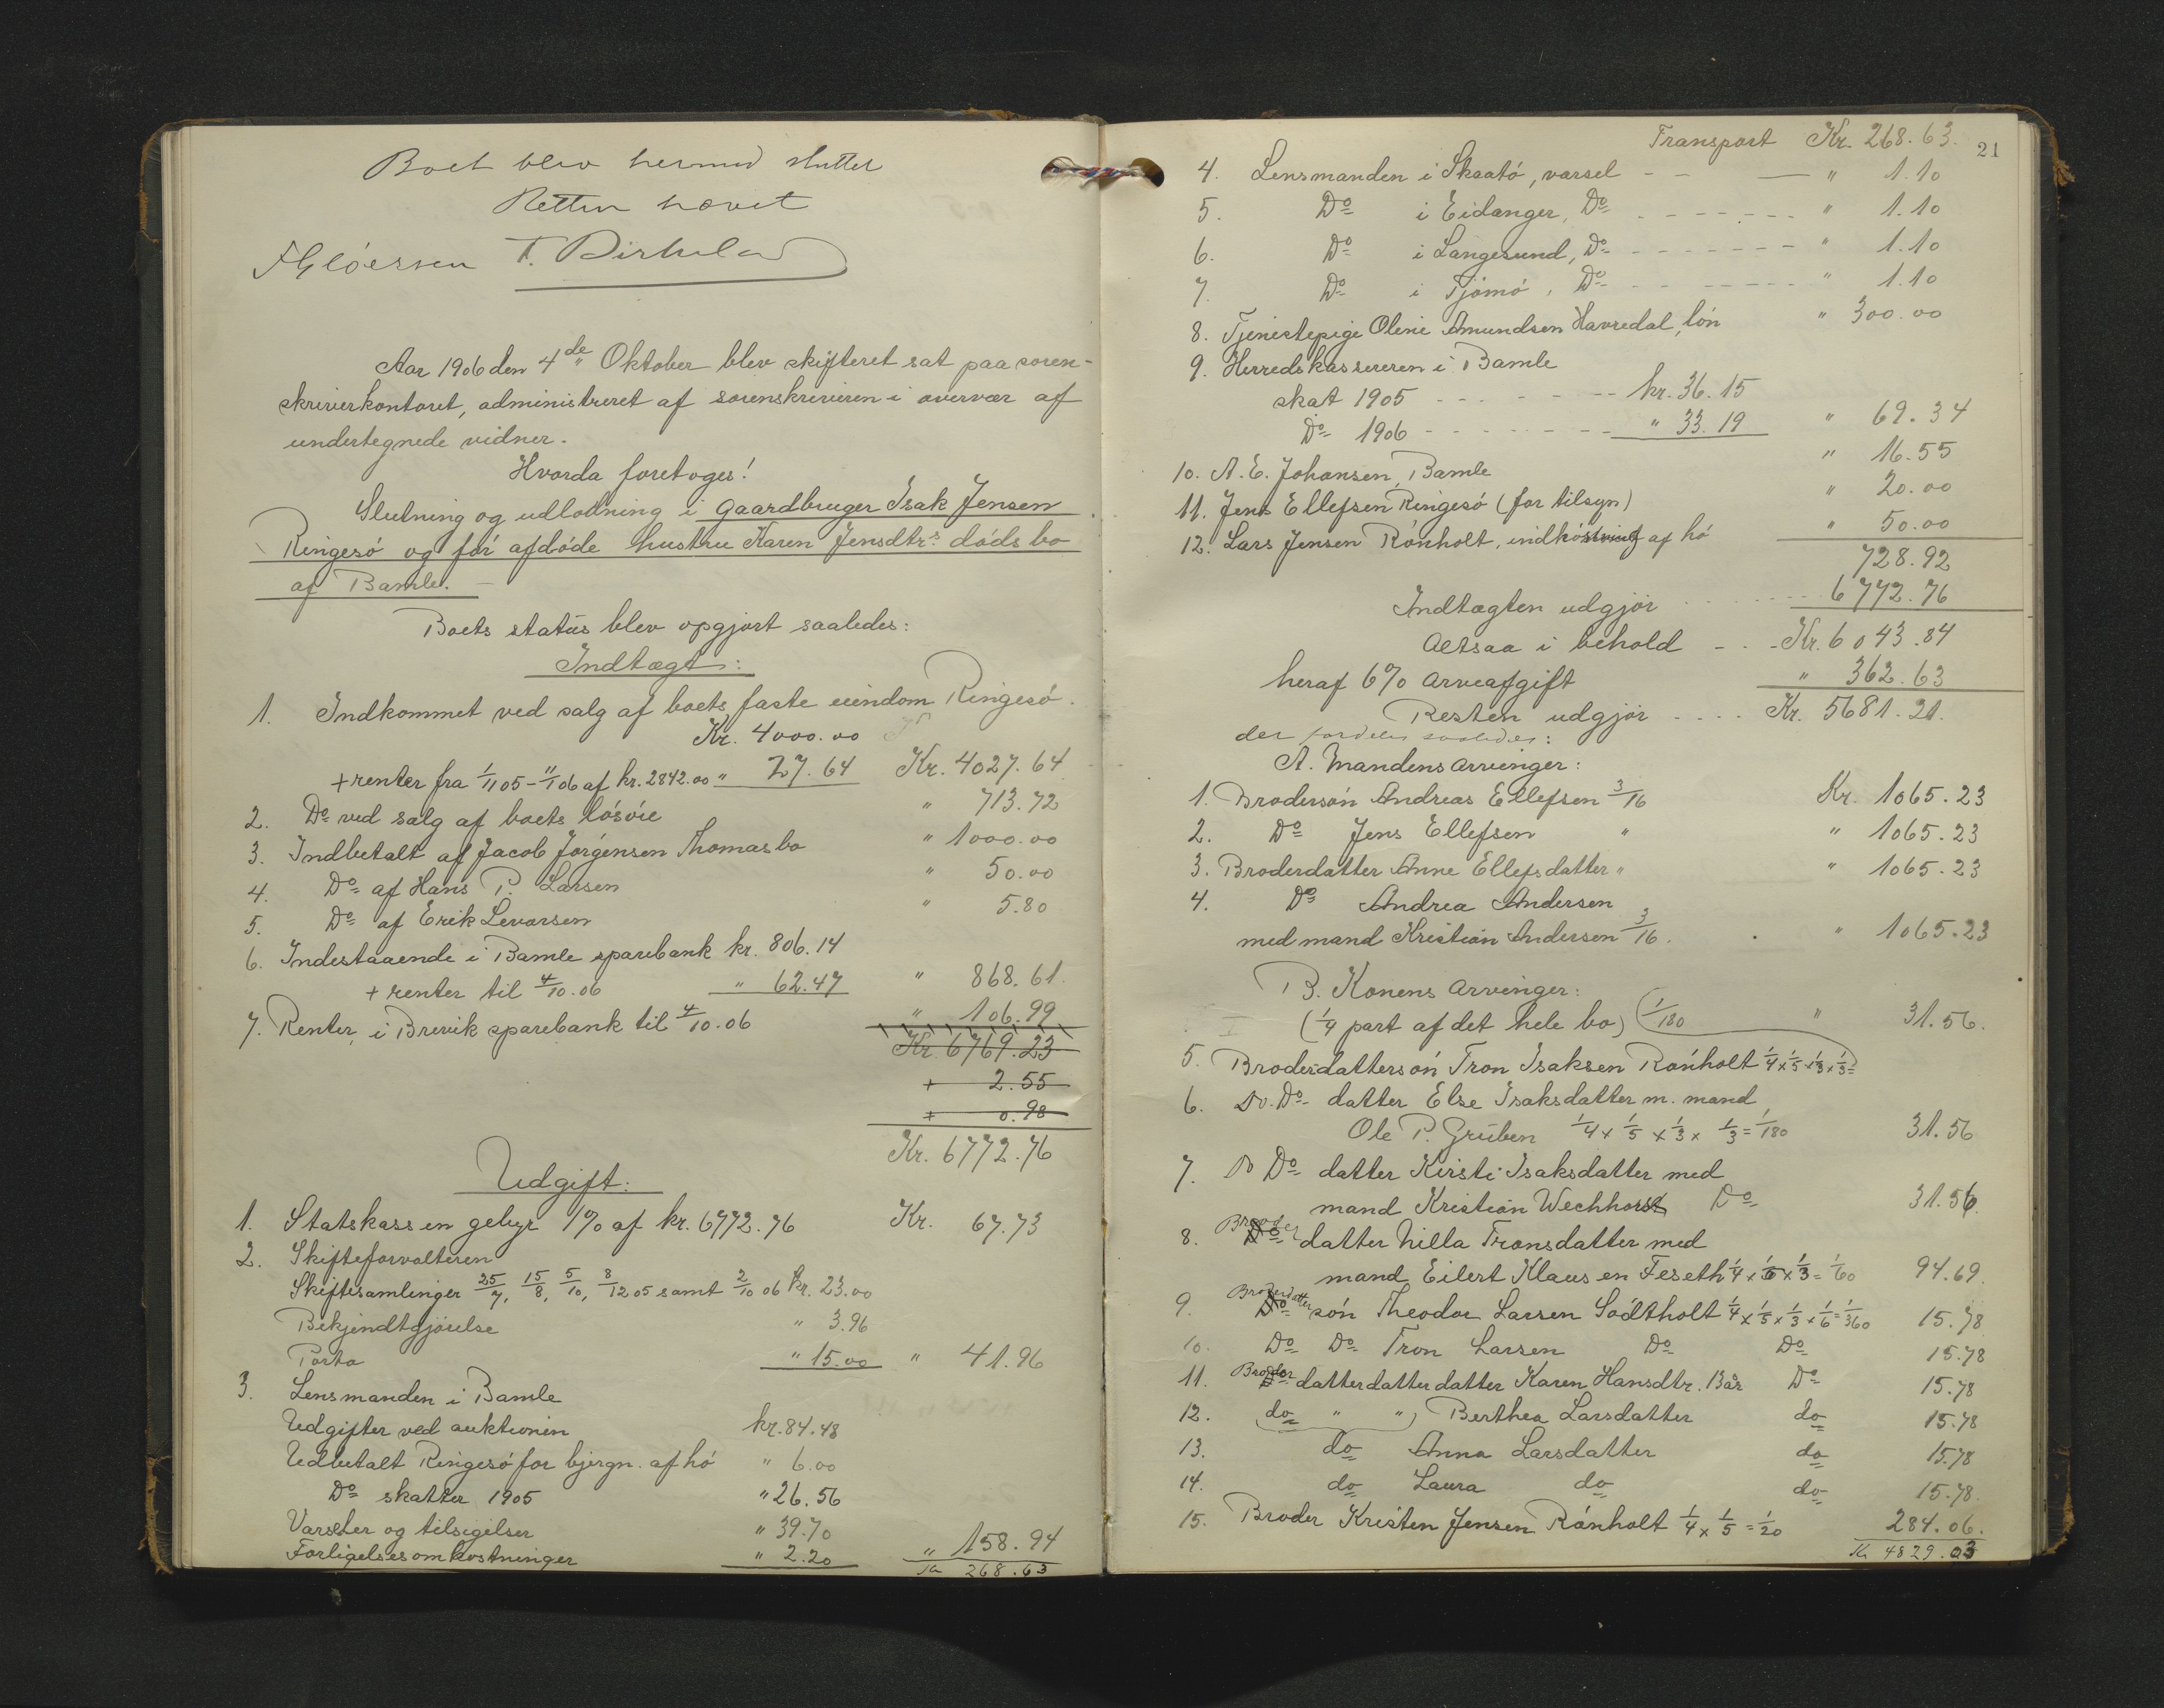 Boet blev hermed sluttet
Retten hævet
T. Birkeland
Aar 1906 den 4de Oktober blev skifteret sat paa soren-
skriverkontoret, administreret af sorenskriveren i overvær af
undertegnede vidner.
Hvorda foretoges!
Slutning og udlodning i gaardbruger Isak Jensen
Ringesö og för afdöde hustru Karen Jensdtrs dödsbo
af Bamle. —
Boets status blev opgjort saaledes:
Indtægt:
1. Indkommet ved salg af boets faste eiendom Ringesö.
Kr. 4000.00
+ renter fra 1/11 05 - 11/1 06 af kr. 2842.00 " 27.64 Kr. 4027.64
2. Do ved salg af boets lösöre " 713.72
3. Indbetalt af Jacob Jörgensen Thomasbo " 1000.00
4. Do af Hans P. Larsen " 50.00
5. Do af Erik Levorsen " 5.80
6. Indestaaende i Bamle sparebank kr. 806.14
+ renter til 4/10.06 " 62.47 " 868.61
7. Renter i Brevik sparebank til 4/10.06 " 106.99
Kr. 6769.23
+ 2.55
+ 0.98
Kr. 6772.76
Udgift:
1. Statskassen gebyr 1% af kr. 6772.76 Kr. 67.73
2. Skifteforvalteren
Skiftesamlinger 25/7, 15/8, 5/10, 8/12 05 samt 2/10 06 kr. 23.00
Bekjendtgjörelse " 3.96
Porto " 15.00 " 41.96
3. Lensmanden i Bamle
Udgifter ved auktionen kr. 84.48
Udbetalt Ringesö for bjergn. af hö " 6.00
Do skatter 1905 " 26.56
Varsler og tilsigelser " 39.70
Forligelsesomkostninger " 2.20 " 158.94
Kr 268.63
21
Transport Kr. 268.63.
4. Lensmanden i Skaatö, varsel - - — " 1.10
5. Do i Eidanger, Do - - - - - - - " 1.10
6. Do i Langesund, Do - - - - - - - " 1.10
7. Do i Tjömö, Do - - - - - - - " 1.10
8. Tjenestepige Oline Amundsen Havredal, lön " 300.00
9. Herredskassereren i Bamle
skat 1905 - - - - - - kr. 36.15
Do 1906 - - - - - - - " 33.19 " 69.34
10. A. E. Johansen, Bamle " 16.55
11. Jens Ellefsen Ringesö (for tilsyn) " 20.00
12. Lars Jensen Rönholt, indhöstning af hö " 50.00
728.92
Indtægten udgjör - - - - - - 6772.76
Altsaa i behold - - - Kr. 6043.84
heraf 6% arveafgift " 362.63
Resten udgjör - - - - Kr. 5681.21.
der fordeles saaledes:
A. Mandens arvinger:
1. Brodersön Andreas Ellefsen 3/16 Kr. 1065.23
2. Do Jens Ellefsen " " 1065.23
3. Broderdatter Anne Ellefsdatter " " 1065.23
4. Do Andrea Andersen
med mand Kristian Andersen 3/16. " 1065.23
B. Konens arvinger:
(1/4 part af det hele bo) 1/180 " 31.56.
5. Broderdattersön Tron Isaksen Rönholt 1/4 x 1/5 x 1/3 x 1/3 =
6. Do. Do datter Else Isaksdatter m. mand
Ole P. Gruben 1/4 x 1/5 x 1/3 x 1/3 = 1/180 31.56
7. Do Do datter Kirsti Isaksdatter med
mand Kristian Wechhorst Do 31.56.
8. Broder datter Nilla Tronsdatter med
mand Eilert Klausen Feseth 1/4 x 1/5 x 1/3 = 1/60 94.69.
9. Broderdatter sön Theodor Larsen Södtholt 1/4 x 1/5 x 1/3 x 1/6 = 1/360 15.78
10. Do Do Tron Larsen Do Do 15.78
11. Broder datterdatterdatter Karen Hansdtr. Baar Do 15.78
12. do " " Berthea Larsdatter do 15.78
13. do Anna Larsdatter do 15.78
14. do Laura do do 15.78.
15. Broder Kristen Jensen Rönholt 1/4 x 1/5 = 1/20 284.06.
Kr 4829.03